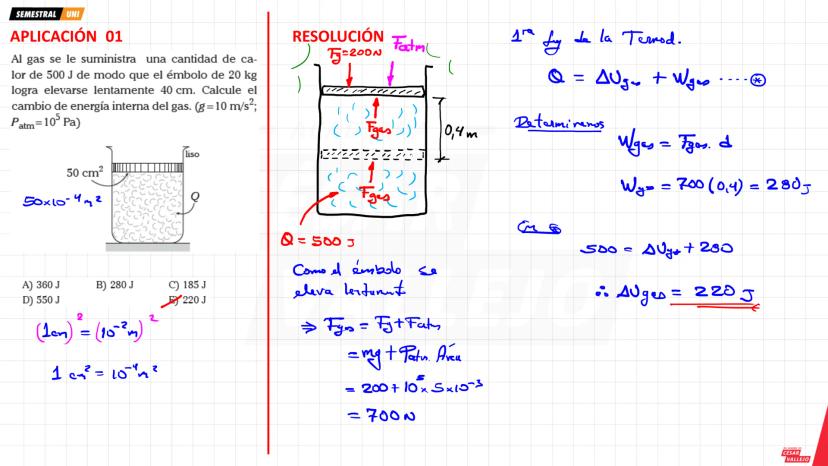 SEMESTRAL UNI
APLICACIÓN 01
Al gas se le suministra una cantidad de ca-
lor de 500 J de modo que el émbolo de 20 kg
logra elevarse lentamente 40 cm. Calcule el
cambio de energía interna del gas. (g=10 m/s²;
Patm=10⁵ Pa)
liso
50 cm²
50×10⁻⁴m²
Q
A) 360 J B) 280 J C) 185 J
D) 550 J E) 220 J
(1cm)² = (10⁻²m)²
1 cm² = 10⁻⁴m²
RESOLUCIÓN
Fatm
Fg=200N
Fgas
0,4m
Fgas
Q = 500 J
Como el émbolo se
eleva lentament
⇒ Fgas = Fg + Fatm
= mg + Patm. Área
= 200 + 10⁵ × 5×10⁻³
= 700 N
1ra Ley de la Termod.
Q = ΔUgas + Wgas ....⊛
Determinemos
Wgas = Fgas. d
Wgas = 700(0,4) = 280J
En ⊛
500 = ΔUgas + 280
∴ ΔUgas = 220 J
CÉSAR
VALLEJO